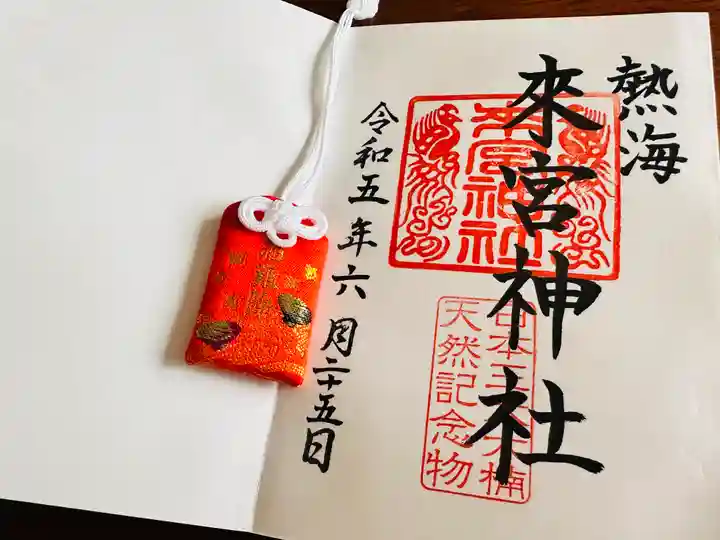 熱海
來宮神社
來宮神社
天然記念物
令和五年六月二十五日